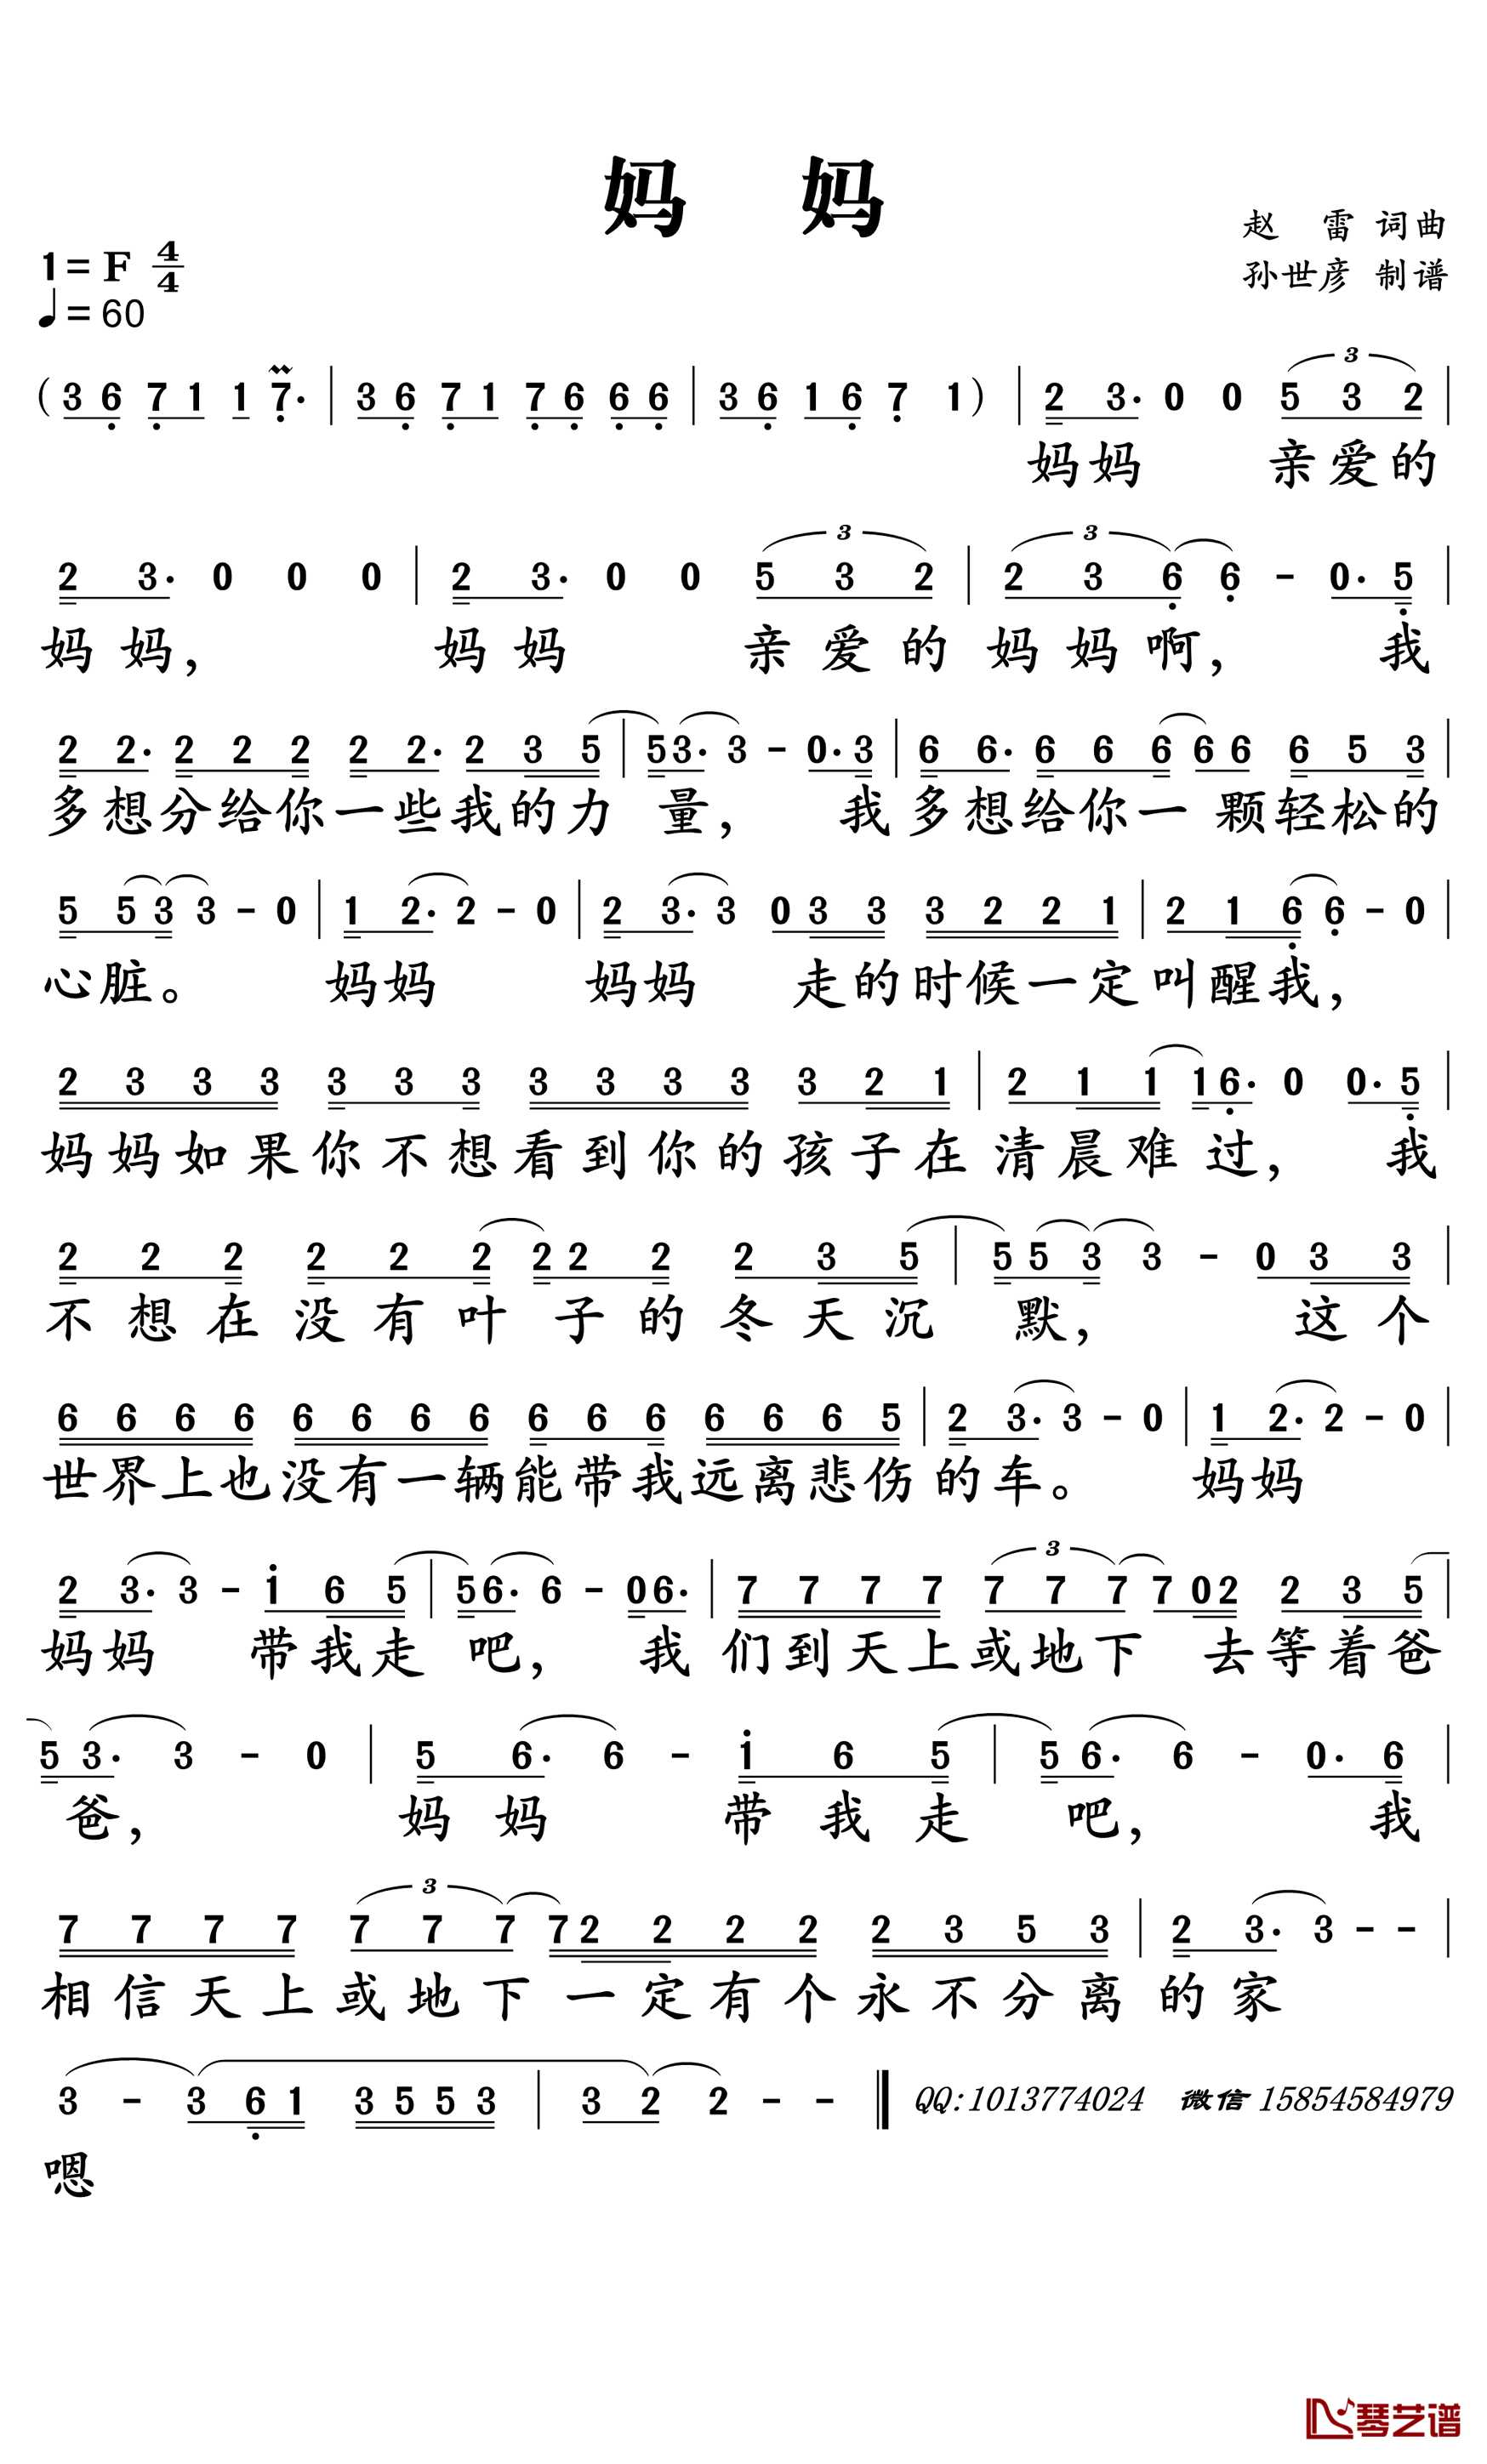 妈 妈
赵 雷 词曲
1= F 4/4
孙世彦 制谱
♩= 60
(3 6 7 1 1 7· | 3 6 7 1 7 6 6 6 | 3 6 1 6 7 1) | 2 3· 0 0 5 3 2 |
妈妈 亲爱的
2 3· 0 0 0 | 2 3· 0 0 5 3 2 | 2 3 6 6 - 0· 5 |
妈妈, 妈妈 亲爱的 妈妈啊, 我
2 2· 2 2 2 2 2· 2 3 5 | 5 3· 3 - 0· 3 | 6 6· 6 6 6 6 6 6 5 3 |
多想分给你一些我的力 量, 我 多想给你一 颗轻松的
5 5 3 3 - 0 | 1 2· 2 - 0 | 2 3· 3 0 3 3 3 2 2 1 | 2 1 6 6 - 0 |
心脏。 妈妈 妈妈 走的时候一定 叫醒我,
2 3 3 3 3 3 3 3 3 3 3 3 2 1 | 2 1 1 1 6· 0 0· 5 |
妈妈如果你不想看到你的孩子在 清晨难 过, 我
2 2 2 2 2 2 2 2 2 2 3 5 | 5 5 3 3 - 0 3 3 |
不想在没有叶 子的冬天沉 默, 这个
6 6 6 6 6 6 6 6 6 6 6 6 6 6 5 | 2 3· 3 - 0 | 1 2· 2 - 0 |
世界上也没有一辆能带我远离悲伤 的车。 妈妈
2 3· 3 - 1 6 5 | 5 6· 6 - 0 6· | 7 7 7 7 7 7 7 7 0 2 2 3 5 |
妈妈 带我走 吧, 我 们到天上或地下 去等着爸
5 3· 3 - 0 | 5 6· 6 - 1 6 5 | 5 6· 6 - 0· 6 |
爸, 妈妈 带我走 吧, 我
7 7 7 7 7 7 7 7 2 2 2 2 2 3 5 3 | 2 3· 3 - - |
相信天上或地下 一定有个永不分离 的家
3 - 3 6 1 3 5 5 3 | 3 2 2 - - ‖ QQ:1013774024 微信 15854584979
嗯
琴艺谱